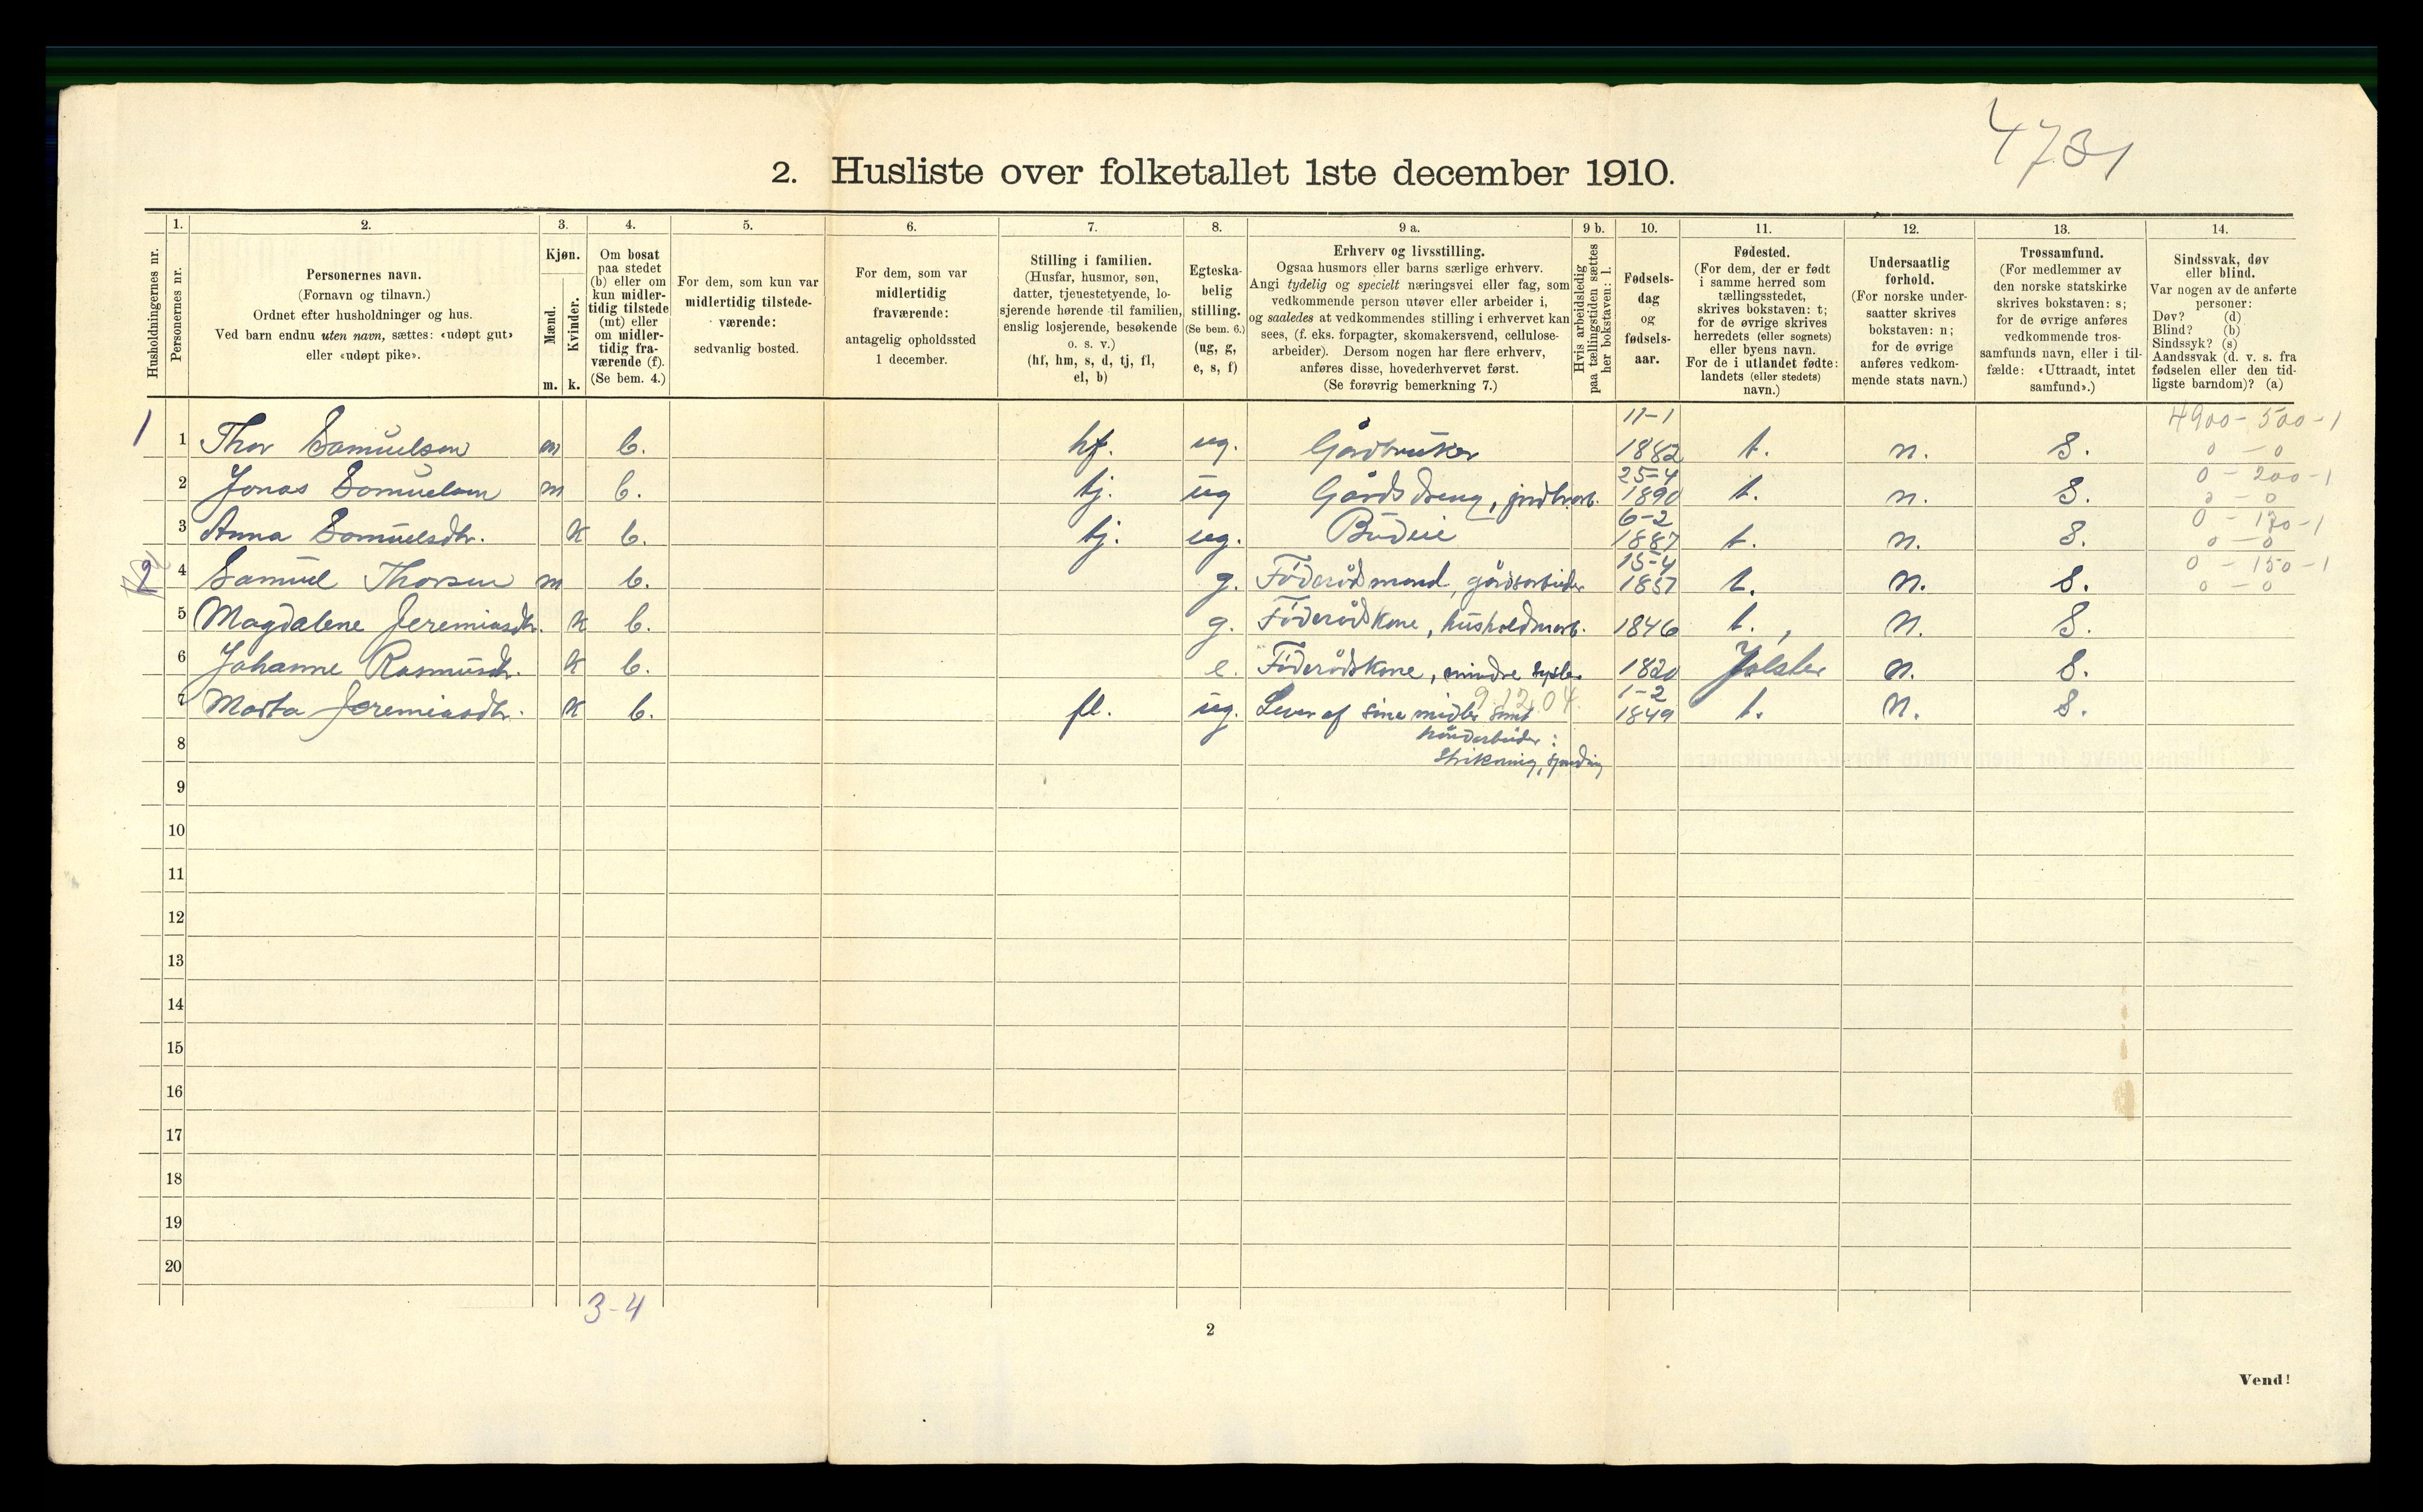 4731
2. Husliste over folketallet 1ste december 1910.
Husholdningernes nr.
1.
Personernes nr.
2.
Personernes navn.
(Fornavn og tilnavn.)
Ordnet efter husholdninger og hus.
Ved barn endnu uten navn, sættes: «udøpt gut»
eller «udøpt pike».
3.
Kjøn.
Mænd.
Kvinder.
m. k.
4.
Om bosat
paa stedet
(b) eller om
kun midler-
tidig tilstede
(mt) eller
om midler-
tidig fra-
værende (f).
(Se bem. 4.)
5.
For dem, som kun var
midlertidig tilstede-
værende:
sedvanlig bosted.
6.
For dem, som var
midlertidig
fraværende:
antagelig opholdssted
1 december.
7.
Stilling i familien.
(Husfar, husmor, søn,
datter, tjenestetyende, lo-
sjerende hørende til familien,
enslig losjerende, besøkende
o. s. v.)
(hf, hm, s, d, tj, fl,
el, b)
8.
Egteska-
belig
stilling.
(Se bem. 6.)
(ug, g,
e, s, f)
9 a.
Erhverv og livsstilling.
Ogsaa husmors eller barns særlige erhverv.
Angi tydelig og specielt næringsvei eller fag, som
vedkommende person utøver eller arbeider i,
og saaledes at vedkommendes stilling i erhvervet kan
sees, (f. eks. forpagter, skomakersvend, cellulose-
arbeider). Dersom nogen har flere erhverv,
anføres disse, hovederhvervet først.
(Se forøvrig bemerkning 7.)
9 b.
Hvis arbeidsledig
paa tællingstiden sættes
her bokstaven: l.
10.
Fødsels-
dag
og
fødsels-
aar.
11.
Fødested.
(For dem, der er født
i samme herred som
tællingsstedet,
skrives bokstaven: t;
for de øvrige skrives
herredets (eller sognets)
eller byens navn.
For de i utlandet fødte:
landets (eller stedets)
navn.)
12.
Undersaatlig
forhold.
(For norske under-
saatter skrives
bokstaven: n;
for de øvrige
anføres vedkom-
mende stats navn.)
13.
Trossamfund.
(For medlemmer av
den norske statskirke
skrives bokstaven: s;
for de øvrige anføres
vedkommende tros-
samfunds navn, eller i til-
fælde: «Uttraadt, intet
samfund».)
14.
Sindssvak, døv
eller blind.
Var nogen av de anførte
personer:
Døv? (d)
Blind? (b)
Sindssyk? (s)
Aandssvak (d. v. s. fra
fødselen eller den tid-
ligste barndom)? (a)
1 1 Thor Samuelsen m b. hf. ug. Gårdbruker 11-1 1882 t. n. S. 4900-500-1 0-0
2 Jonas Samuelsen m b. tj. ug Gårdsdreng, jordbrarb. 25-4 1890 t. n. S. 0-200-1 0-0
3 Anna Samuelsdtr. k b. tj. ug. Budeie 6-2 1887 t. n. S. 0-170-1 0-0
2 4 Samuel Thorsen m b. g. Föderådsmand, gårdsarbeider 15-4 1857 t. n. S. 0-150-1 0-0
5 Magdalene Jeremiasdtr. k b. g. Föderådskone, husholdnarb. 1846 t. n. S.
6 Johanne Rasmusdtr. k b. e. Föderådskone, mindre sysler 1820 Jølster n. S.
7 Marta Jeremiasdtr. k b. fl. ug. Lever af sine midler samt 9.12.04. 1-2 1849 t. n. S.
håndarbeider:
8
Strikning, spinding
9
10
11
12
13
14
15
16
17
18
19
20
3-4
2
Vend!